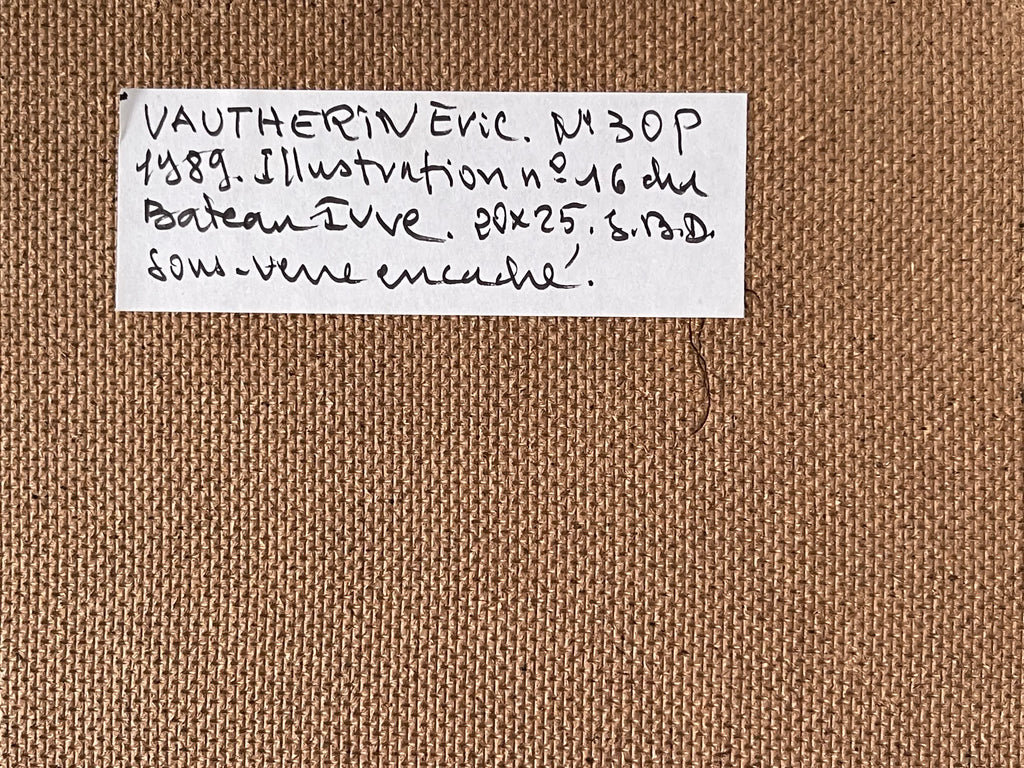 VAUTHERIN Eric. N° 30P
1989. Illustration n° 16 du
Bateau Ivre. 20x25. S.B.D.
sous-verre encaché.